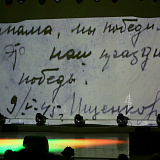 мама, мы победи
Это наш праздни
победы.
9/V-45г. Ищенков